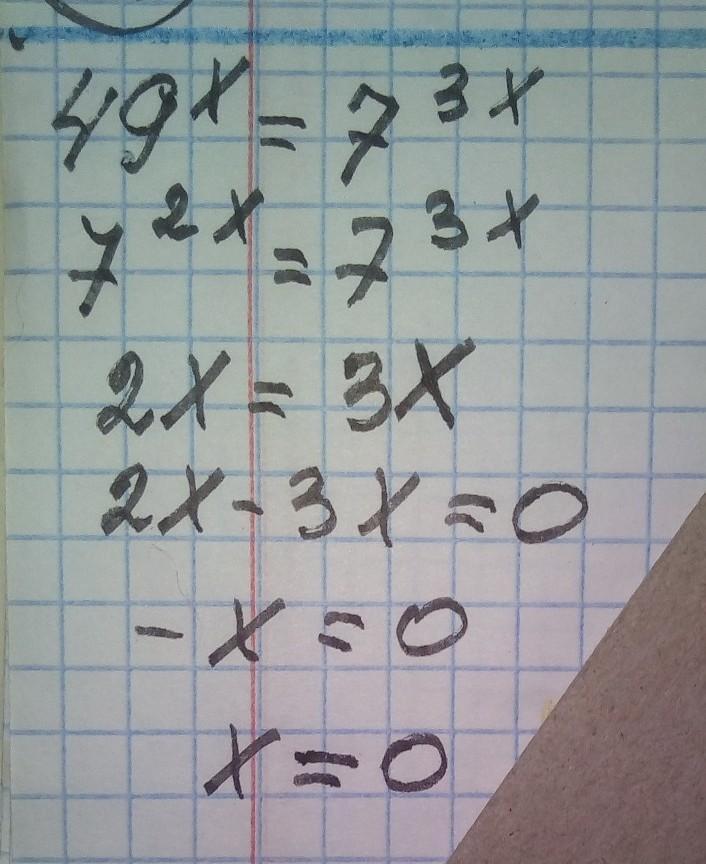 49^x = 7^3x
7^2x = 7^3x
2x = 3x
2x - 3x = 0
- x = 0
x = 0